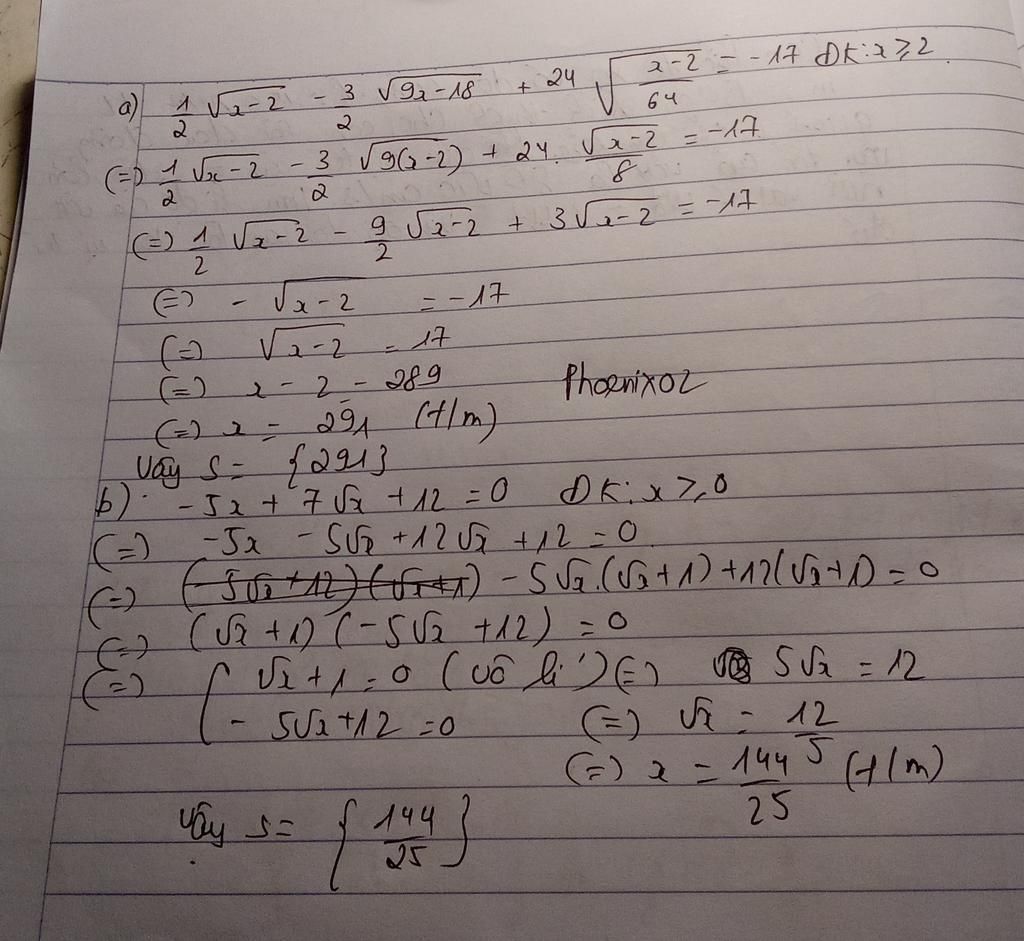 a) 1/2 √(x-2) - 3/2 √(9x-18) + 24 √((x-2)/64) = -17 ĐK: x ≥ 2
(=) 1/2 √(x-2) - 3/2 √(9(x-2)) + 24. √(x-2)/8 = -17
(=) 1/2 √(x-2) - 9/2 √(x-2) + 3√(x-2) = -17
(=) - √(x-2) = -17
(=) √(x-2) = 17
(=) x - 2 = 289 Phoenix02
(=) x = 291 (t/m)
Vậy S = {291}
b) -5x + 7√x + 12 = 0 ĐK: x ≥ 0
(=) -5x - 5√x + 12√x + 12 = 0
(=) (-5√x + 12)(√x + 1) - 5√x.(√x + 1) + 12(√x + 1) = 0
(=) (√x + 1)(-5√x + 12) = 0
(=) [ √x + 1 = 0 (vô lí) (=) 5√x = 12
- 5√x + 12 = 0 (=) √x = 12/5
(=) x = 144/25 (t/m)
Vậy S = {144/25}